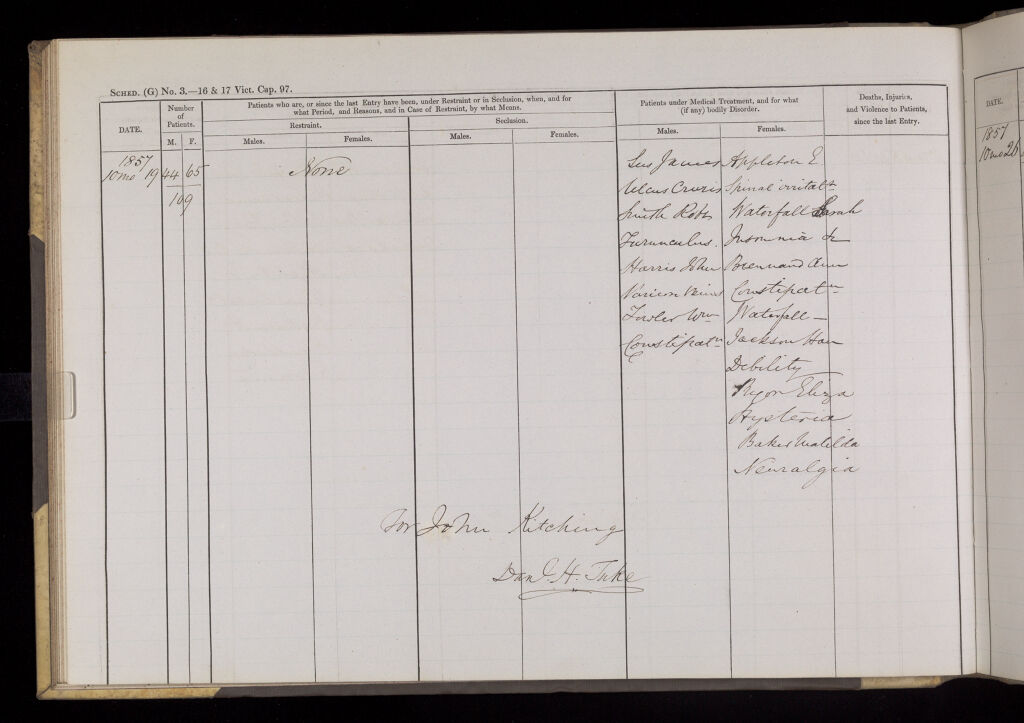 SCHED. (G) No. 3.—16 & 17 Vict. Cap. 97.
DATE.
Number of Patients.
M. F.
Patients who are, or since the last Entry have been, under Restraint or in Seclusion, when, and for
what Period, and Reasons, and in Case of Restraint, by what Means.
Restraint.
Seclusion.
Males. Females. Males. Females.
Patients under Medical Treatment, and for what
(if any) bodily Disorder.
Males. Females.
Deaths, Injuries,
and Violence to Patients,
since the last Entry.
1857
10 mo 19 44 65
109
None
James Appleton E
Ulcus Cruris Spinal irritatn
Smith Robt Waterfall Sarah
Furunculus. Insomnia &c
Harris John Brennand Ann
Veins Constipatn
Fowler Wm Waterfall —
Constipatn Jackson Han
Debility
Eliza
Hysteria
Baker Matilda
Neuralgia
For John Kitching
Danl. H. Tuke
DATE.
1857
10 mo 26